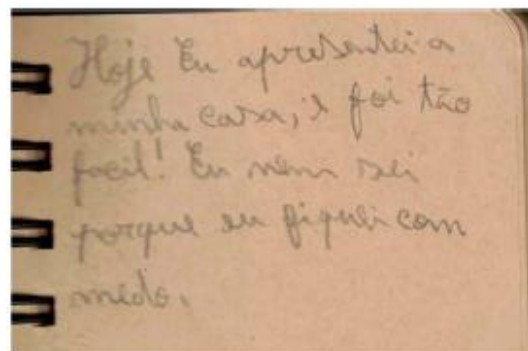 Hoje Eu apresentei a
minha casa, e foi tão
facil! Eu nem sei
porque eu fiquei com
medo.